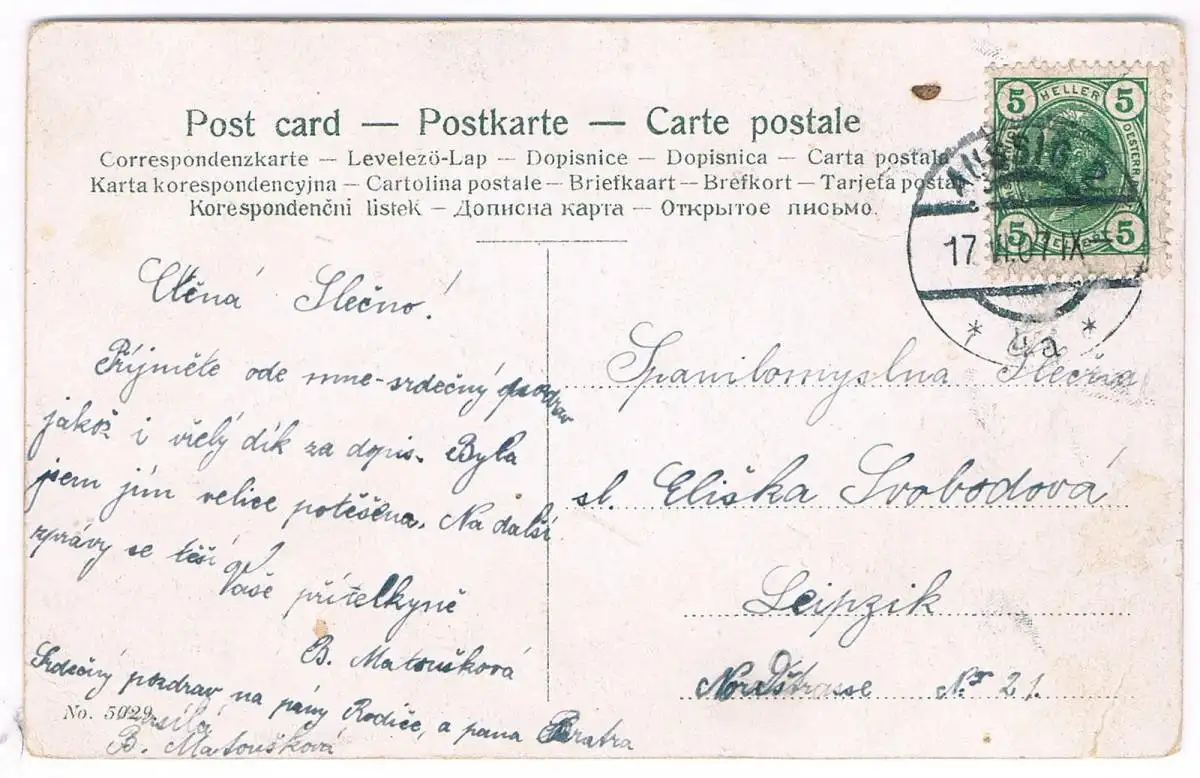 Post card — Postkarte — Carte postale
Correspondenzkarte — Levelező-Lap — Dopisnice — Dopisnica — Carta postala
Karta korespondencyjna — Cartolina postale — Briefkaart — Brefkort — Tarjeta postal
Korespondenčni listek — Дописна карта — Открытое письмо
5 HELLER 5
5 5
AUSSIG 2
17.VI.07 IX
* 4a *
Ctěná Slečno!
Přijměte ode mne srdečný pozdrav
jakož i vřelý dík za dopis. Byla
jsem jím velice potěšena. Na další
zprávy se těší
Vaše přítelkyně
B. Matoušková
Srdečný pozdrav na pány Rodiče, a pana Bratra
No. 5029
B. Matoušková
Spanilomyslna Slečna
sl. Eliška Svobodová
Leipzik
Nordstrasse No 21.